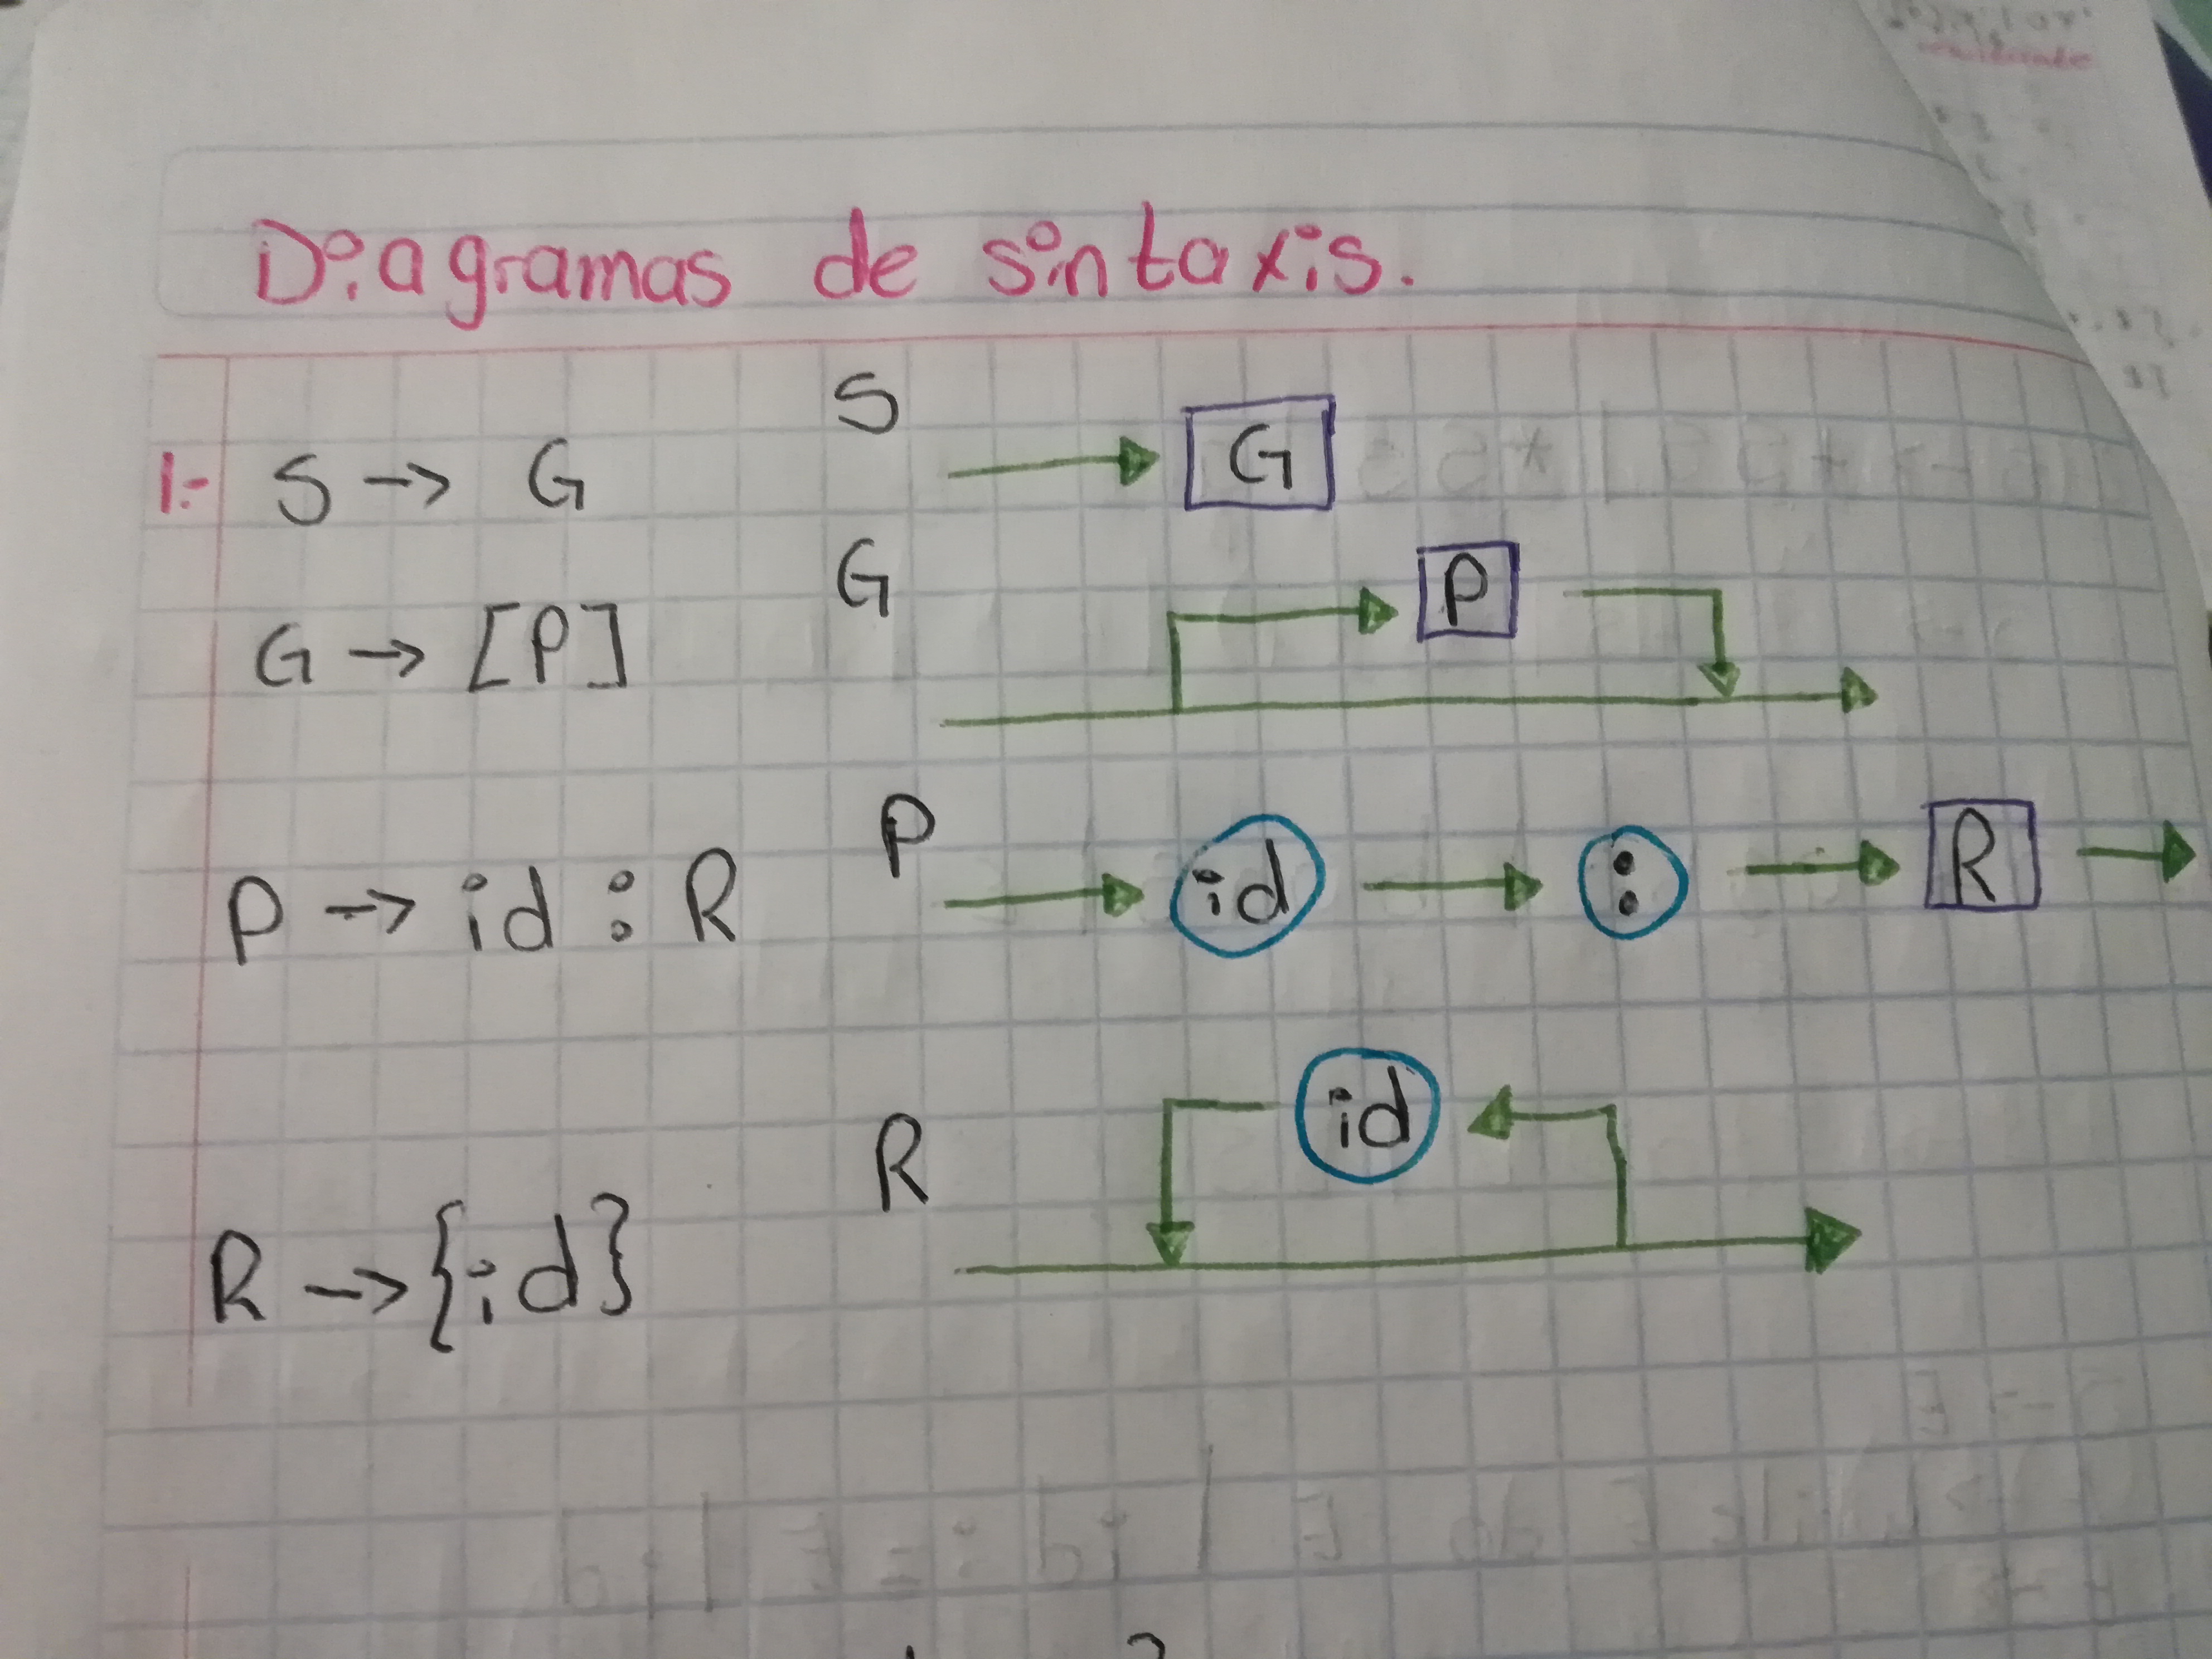 Diagramas de sintaxis.
S G
1.- S -> G
G P
G -> [P]
P id : R
P -> id : R
id
R
R -> {id}